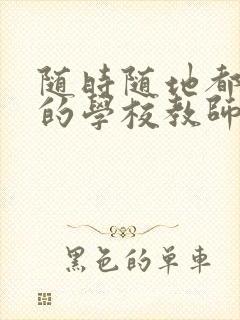 随時随地都
的學校教師
黑色的单車